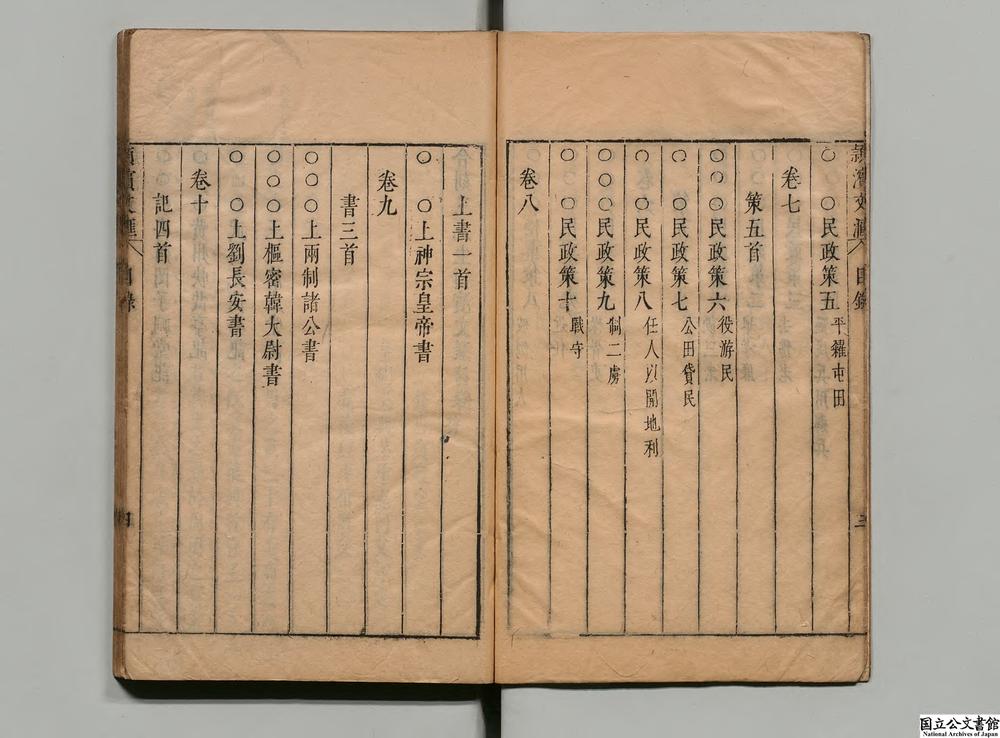 潁濱文匯 目錄 三
○ ○民政策五 平糴屯田
卷七
策五首
○○○民政策六 役游民
○ ○民政策七 公田貸民
○ ○民政策八 任人以開地利
○○○民政策九 制二虜
○ ○民政策十 戰守
卷八
上書一首
○ ○上神宗皇帝書
卷九
書三首
○○○上兩制諸公書
○○○上樞密韓太尉書
○ ○上劉長安書
卷十
記四首
潁濱文匯 目錄 四
国立公文書館
National Archives of Japan